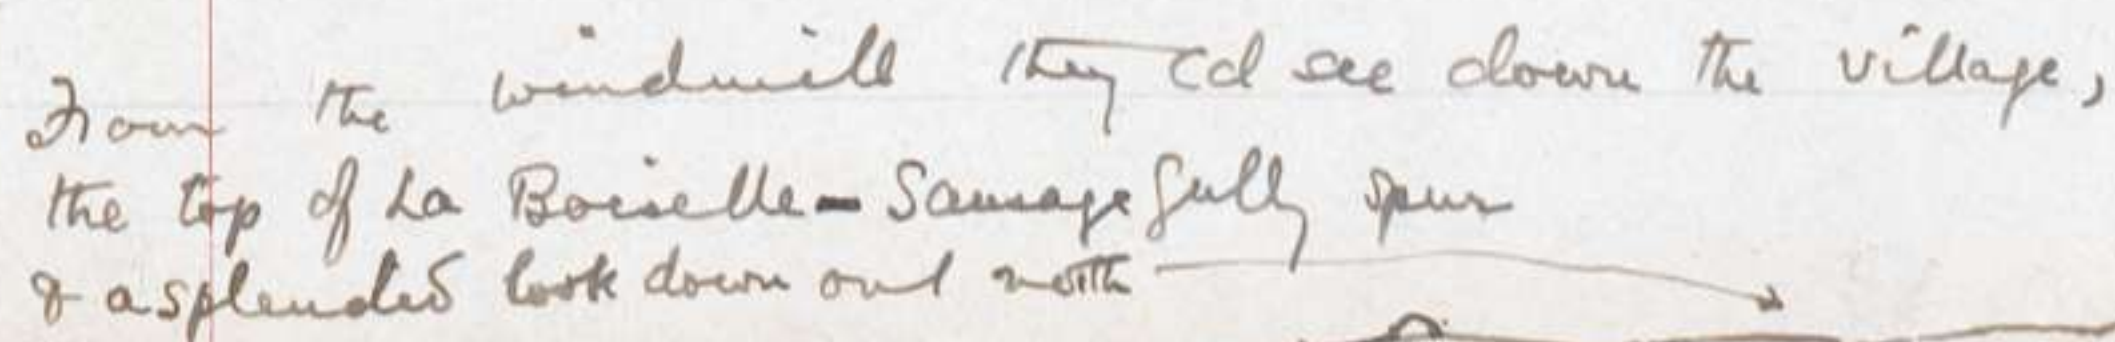 From the windmill they cd see down the village,
the top of La Boiselle - Sausage Gully spur
& a splendid look down out north